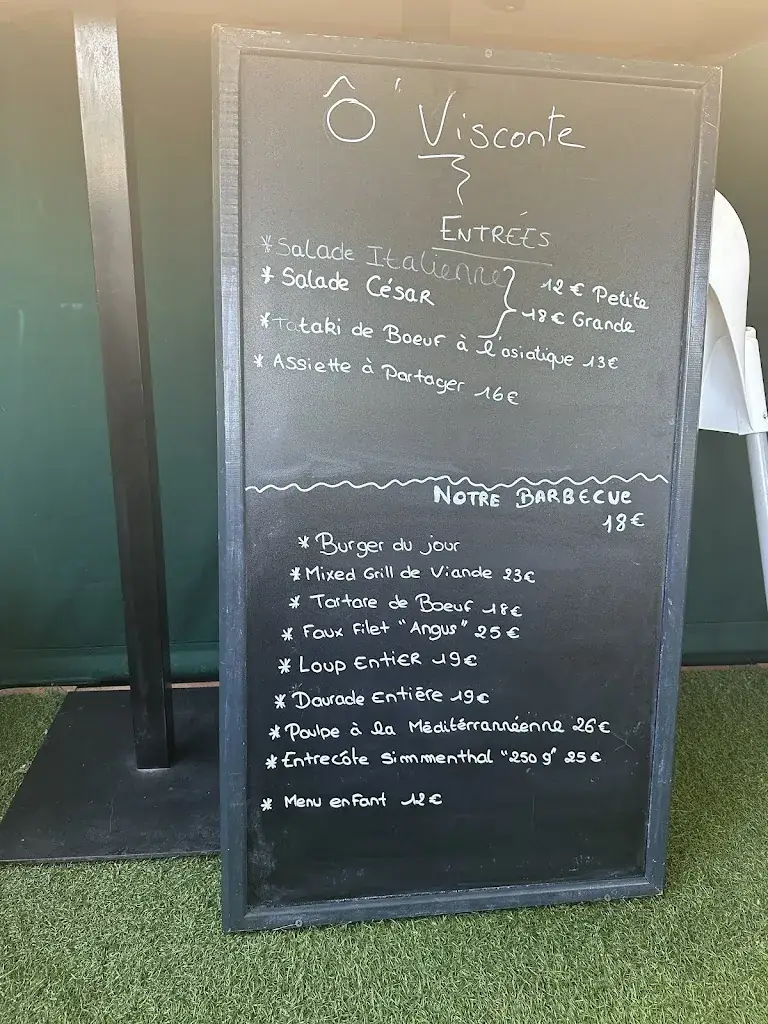 Ô' Visconte
ENTRÉES
* Salade Italienne
* Salade César
12€ Petite
18€ Grande
* Tataki de Boeuf à l'asiatique 13€
* Assiette à Partager 16€
NOTRE BARBECUE
18€
* Burger du jour
* Mixed Grill de Viande 23€
* Tartare de Boeuf 18€
* Faux Filet "Angus" 25€
* Loup Entier 19€
* Daurade Entiére 19€
* Poulpe à la Méditérrannéenne 26€
* Entrecôte Simmenthal "250 g" 25€
* Menu enfant 12€